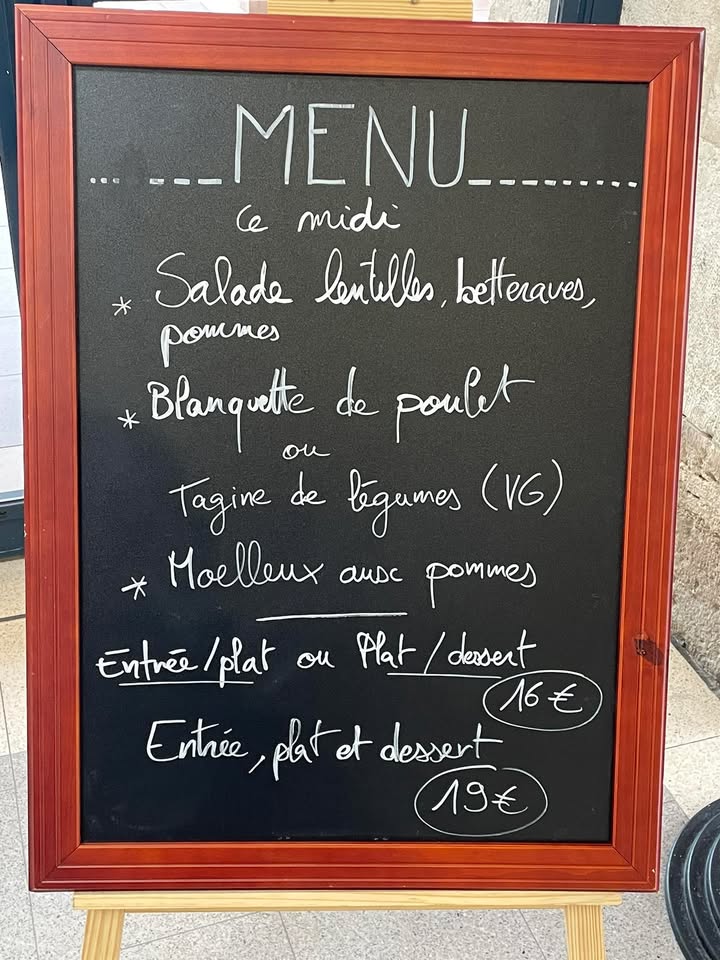 MENU
ce midi
* Salade lentilles, betteraves,
pommes
* Blanquette de poulet
ou
Tagine de légumes (VG)
* Moelleux aux pommes
Entrée/plat ou Plat/dessert
16€
Entrée, plat et dessert
19€